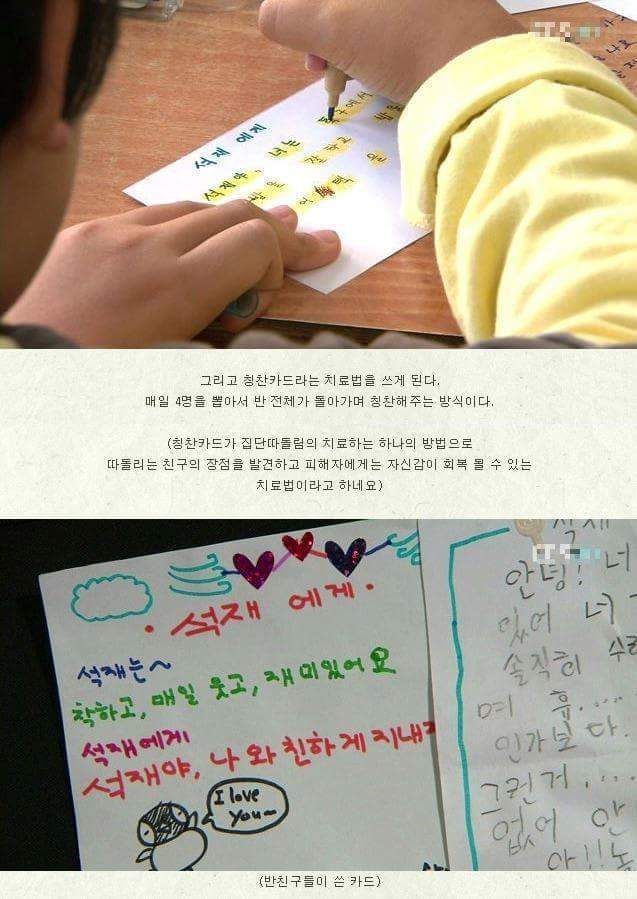 석재 에게
석재야, 너는
밥 먹
그리고 칭찬카드라는 치료법을 쓰게 된다.
매일 4명을 뽑아서 반 전체가 돌아가며 칭찬해주는 방식이다.
(칭찬카드가 집단따돌림의 치료하는 하나의 방법으로
따돌리는 친구의 장점을 발견하고 피해자에게는 자신감이 회복 될 수 있는
치료법이라고 하네요)
석재 에게
석재는~
착하고, 매일 웃고, 재미있어요
석재에게
석재야, 나와 친하게 지내
I love
You~
석재
안녕! 너
있어 너
솔직히
며 휴....
인가보다.
그런거....
없어 안
(반친구들이 쓴 카드)